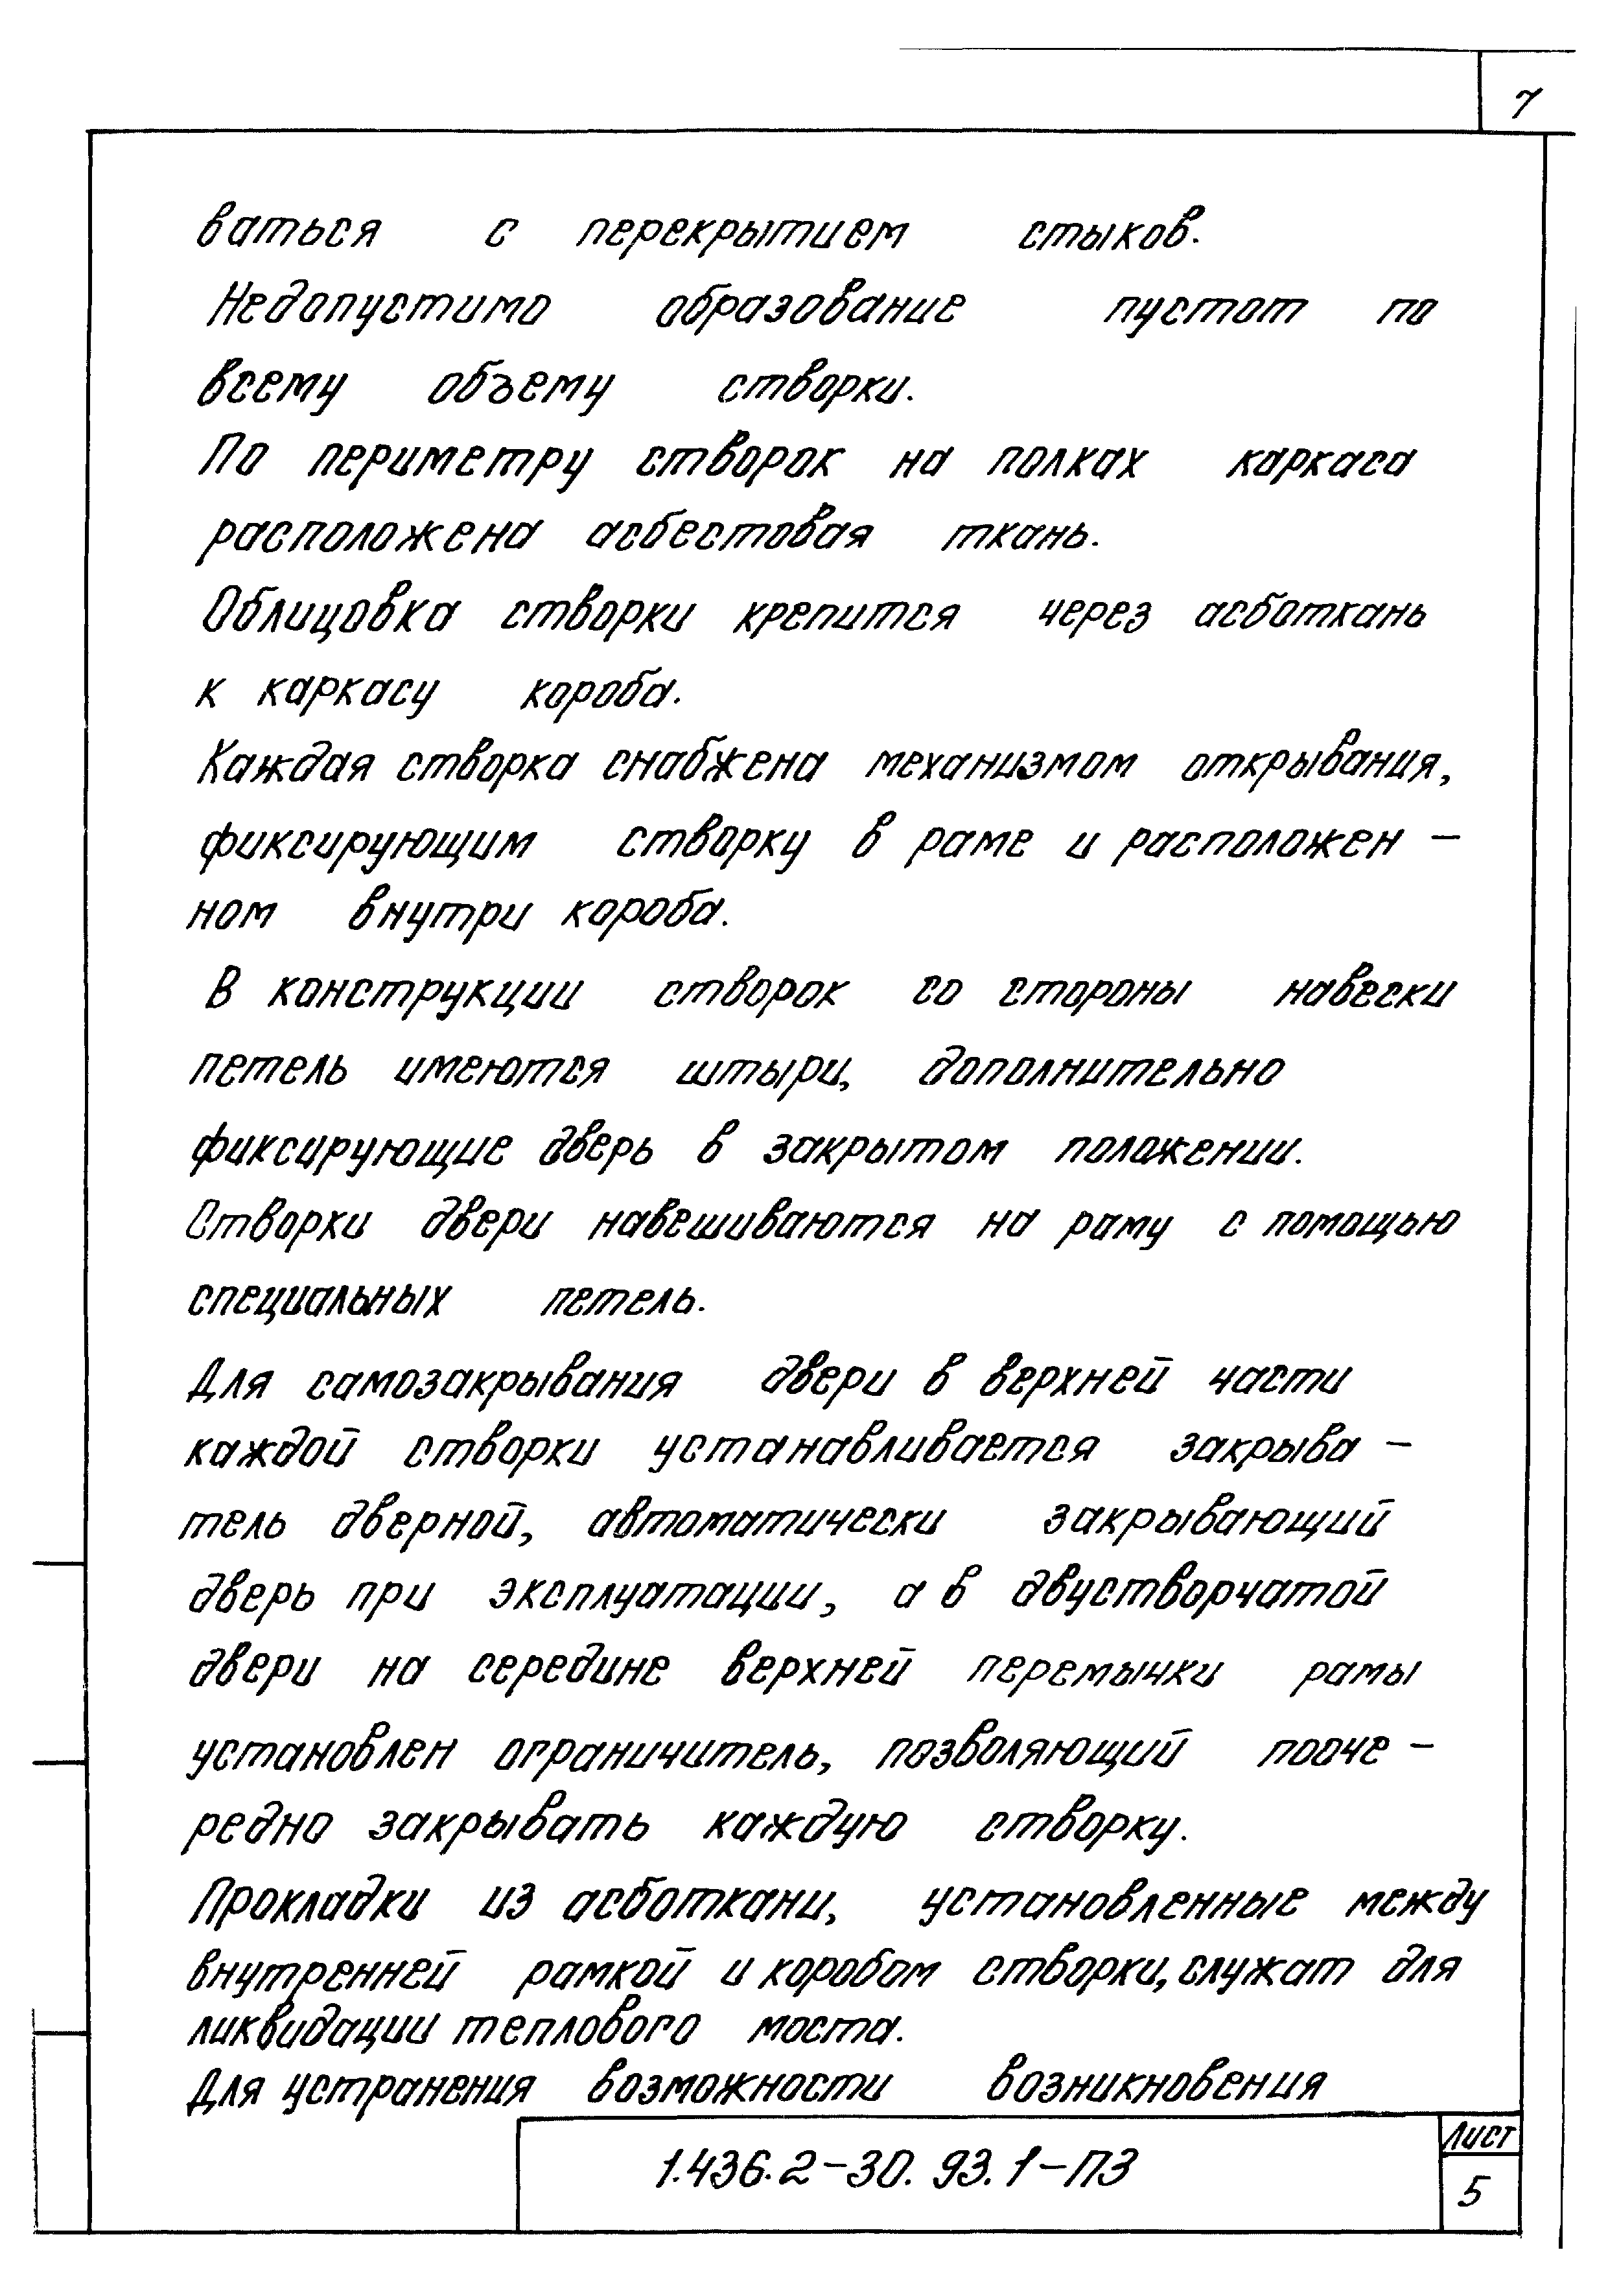 7
ваться с перекрытием стыков.
Недопустимо образование пустот по
всему объему створки.
По периметру створок на полках каркаса
расположена асбестовая ткань.
Облицовка створки крепится через асботкань
к каркасу короба.
Каждая створка снабжена механизмом открывания,
фиксирующим створку в раме и расположен -
ном внутри короба.
В конструкции створок со стороны навески
петель имеются штыри, дополнительно
фиксирующие дверь в закрытом положении.
Створки двери навешиваются на раму с помощью
специальных петель.
Для самозакрывания двери в верхней части
каждой створки устанавливается закрыва -
тель дверной, автоматически закрывающий
дверь при эксплуатации, а в двустворчатой
двери на середине верхней перемычки рамы
установлен ограничитель, позволяющий пооче -
редно закрывать каждую створку.
Прокладки из асботкани, установленные между
внутренней рамкой и коробом створки, служат для
ликвидации теплового моста.
Для устранения возможности возникновения
1.436.2-30.93.1-ПЗ
Лист
5